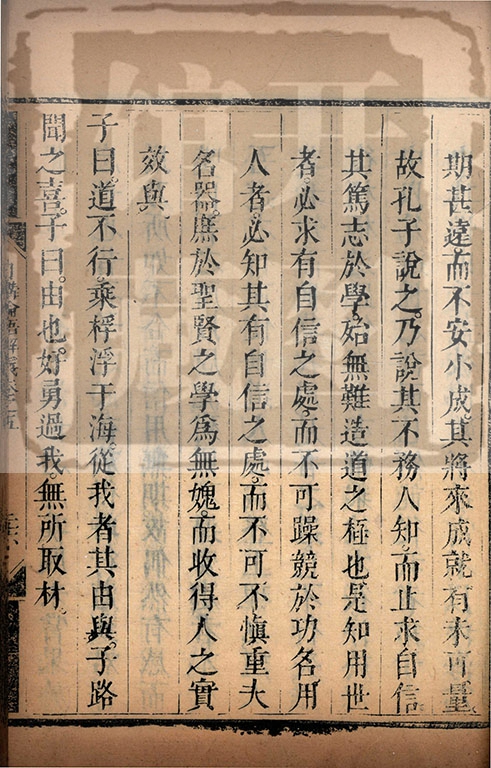 期甚遠而不安小成其將來成就有未可量
故孔子說之乃說其不務人知而止求自信
其篤志於學始無難造道之極也是知用世
者必求有自信之處而不可躁競於功名用
人者必知其有自信之處而不可不慎重夫
名器庶於聖賢之學爲無媿而收得人之實
效與
子曰道不行乘桴浮于海從我者其由與子路
聞之喜子曰由也好勇過我無所取材
日講論語解義卷之五